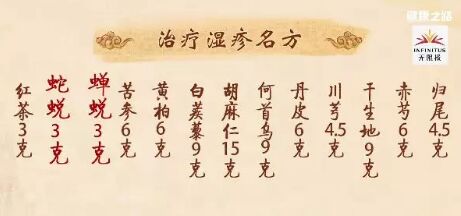 健康之路
治疗湿疹名方
INFINITUS
无限极
红茶3克
蛇蜕3克
蝉蜕3克
苦参6克
黄柏6克
白蒺藜9克
胡麻仁15克
何首乌9克
丹皮6克
川芎4.5克
干生地9克
赤芍6克
归尾4.5克